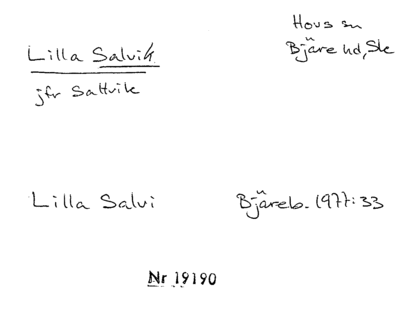 Hovs sn
Lilla Salvik
Bjäre hd, Sk
jfr Saltvik
Lilla Salvi Bjäreb. 1977:33
Nr 19190